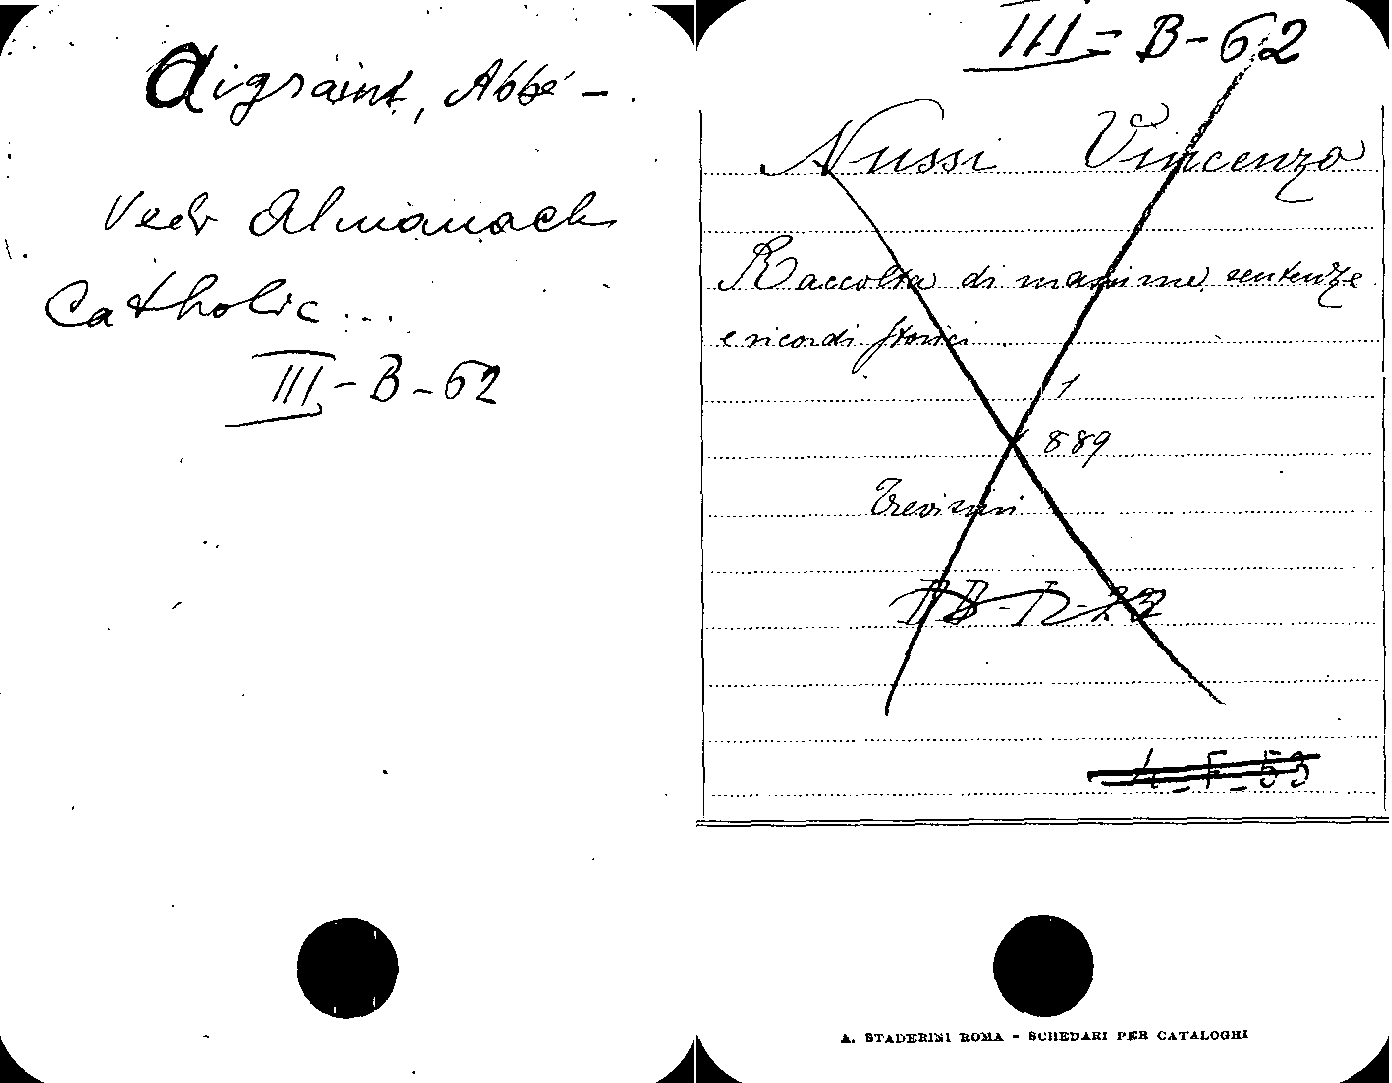 Aigraint, Abbé -
Vedi Almanach
Catholic...
III - B - 62
III = B - 62
Nussi Vincenzo
Raccolta di massime, sentenze
e ricordi storici
1
889
Trevisini
4 - F - 53
A. STADERINI ROMA - SCHEDARI PER CATALOGHI